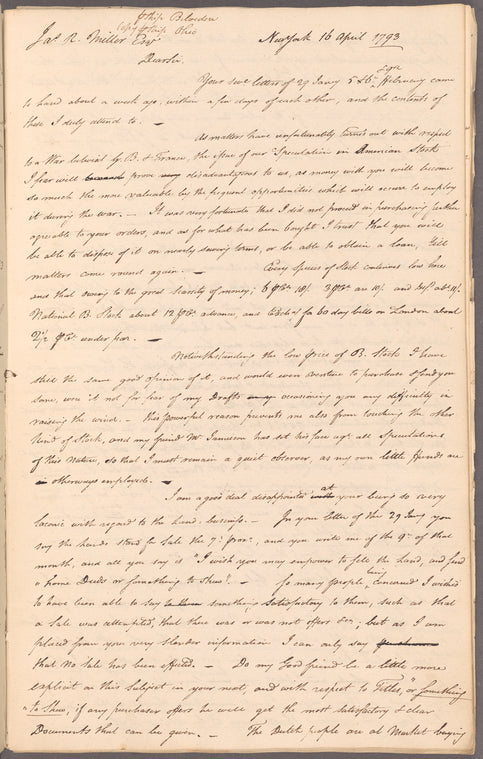 ⅌ Ship Belvedere
Copy ⅌ Ship Ohio
Jas. R. Miller Esqr. New York 16 April 1793
Dear Sir
Your two letters of 29 Jany 5 & 6th February came
to hand about a week ago, within a few days of each other, and the contents of
these I duly attend to. —
As matters have unfortunately turned out with respect
to a War betwixt G. B. & France, the issue of our Speculation in American Stock
I fear will prove very disadvantageous to us, as money with you will become
so much the more valuable by the frequent opportunities which will occur to employ
it during the war. — It was very fortunate that I did not proceed in purchasing further
agreeable to your orders, and as for what has been bought I trust that you will
be able to dispose of it on nearly saving terms, or be able to obtain a loan, till
matters come round again. — Every species of Stock continues low here
and that owing to the great scarcity of money; 6 ⅌ Cts. 18/. 3 ⅌ Cts. are 10/. and
National B. Stock about 12 ⅌ Ct. advance, and for 60 day bills on London about
2½ ⅌ Ct. under par. —
Notwithstanding the low price of B. Stock I have
still the same good opinion of it, and would even venture to purchase & send you
some, were it not for fear of my drafts occasioning you any difficulty in
raising the wind. — this powerful reason prevents me also from touching the other
kind of Stock, and my friend Mr Jamieson has set his face agt. all Speculations
of this Nature, so that I must remain a quiet observer, as my own little funds are
otherways employed. —
I am a good deal disappointed at your being so very
laconic with regard to the Land business. — In your letter of the 29 Jany you
say the lands stand for Sale the 7th proxo, and you write me of the 9th of that
month, and all you say is "I wish you may empower to sell the Land, and send
"home Deeds or Something to Shew". — So many people being concerned I wished
to have been able to say something Satisfactory to them, such as that
a Sale was attempted, that there was or was not offers &c; but as I am
placed from your very slender information I can only say
that no Sale has been effected. — Do my Good friend be a little more
explicit on this Subject in your next, and with respect to Titles, "or Something
"to Shew, if any purchaser offers he will get the most satisfactory & clear
Documents that can be given. — The Dutch people are at Market buying